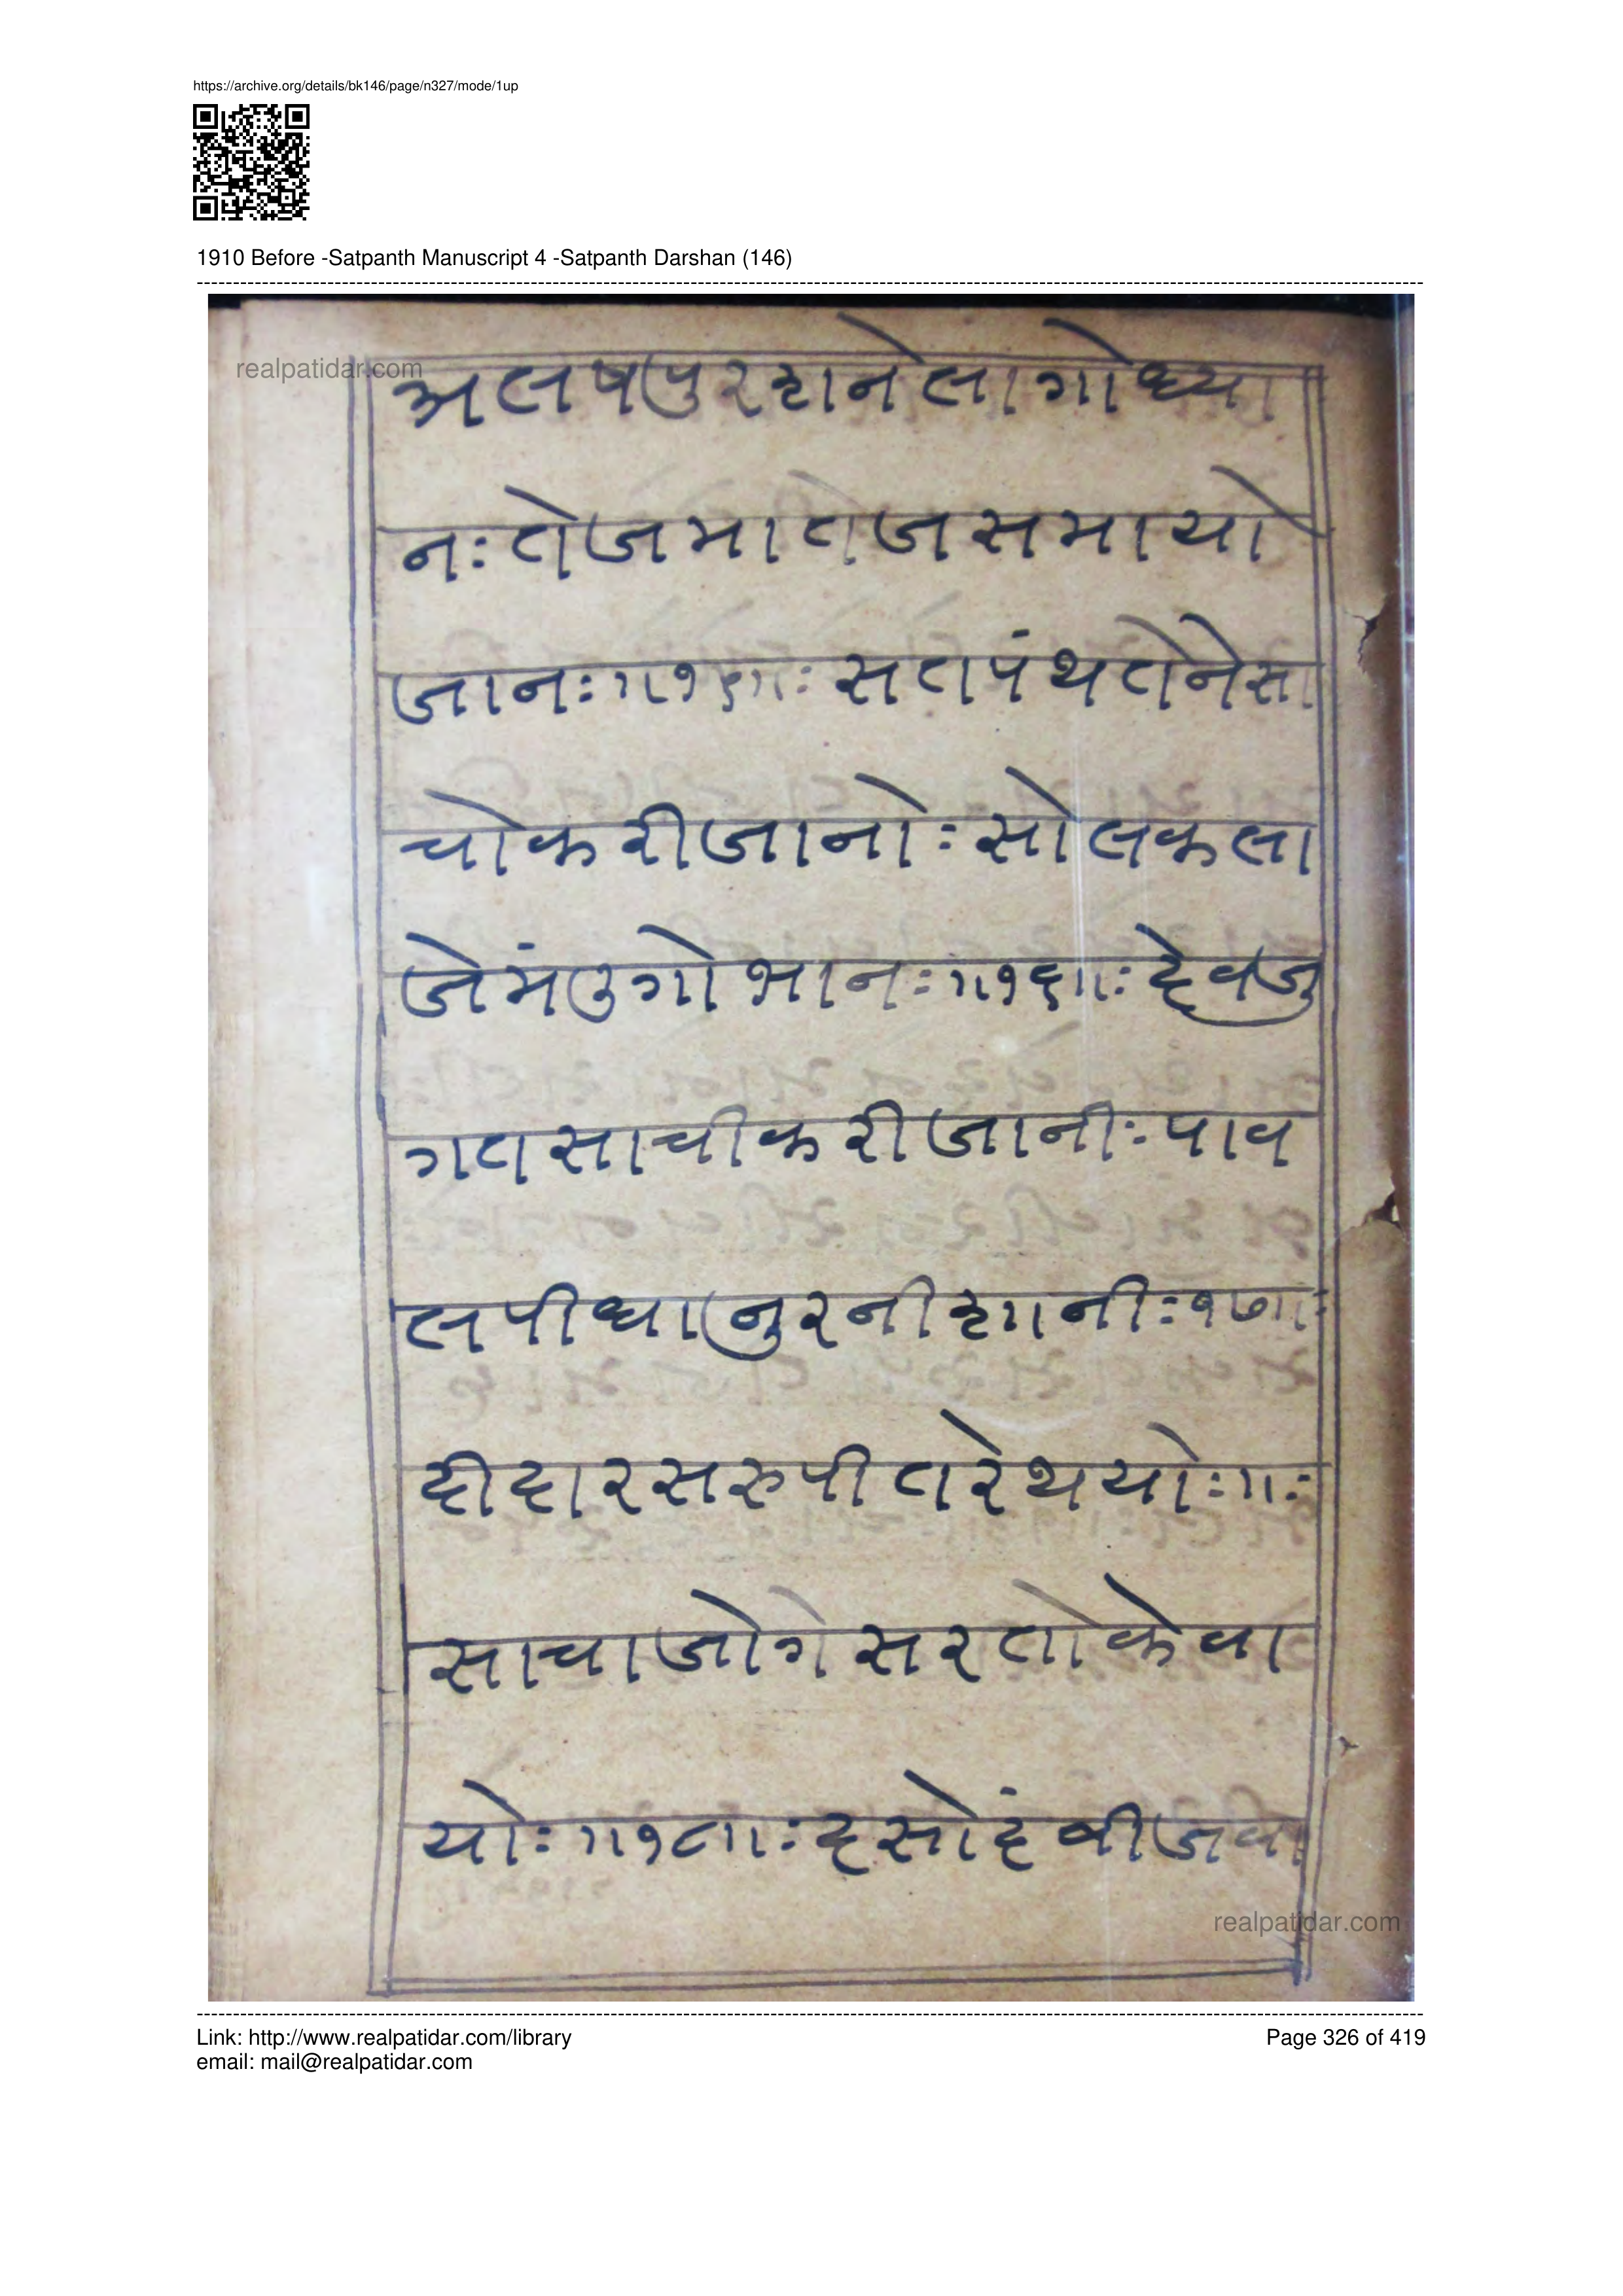 https://archive.org/details/bk146/page/n327/mode/1up
1910 Before -Satpanth Manuscript 4 -Satpanth Darshan (146)
realpatidar.com
अलषपुरहानेलागोध्या
नः तेजमातेजसमायो
जानः॥१५॥ः सतपंथतेनेसा
चोकरीजानोः सोलकला
जेमंउगोभानः॥१६॥ः देवजु
गतसाचीकरीजानीः पाव
लपीधानुरनीहानीः १७॥ः
दीदारसरुपीतरेथयोः॥ः
साचाजोगेसरतोकेवा
योः॥१८॥ः हसोहंबीजवा
realpatidar.com
Link: http://www.realpatidar.com/library
Page 326 of 419
email: mail@realpatidar.com